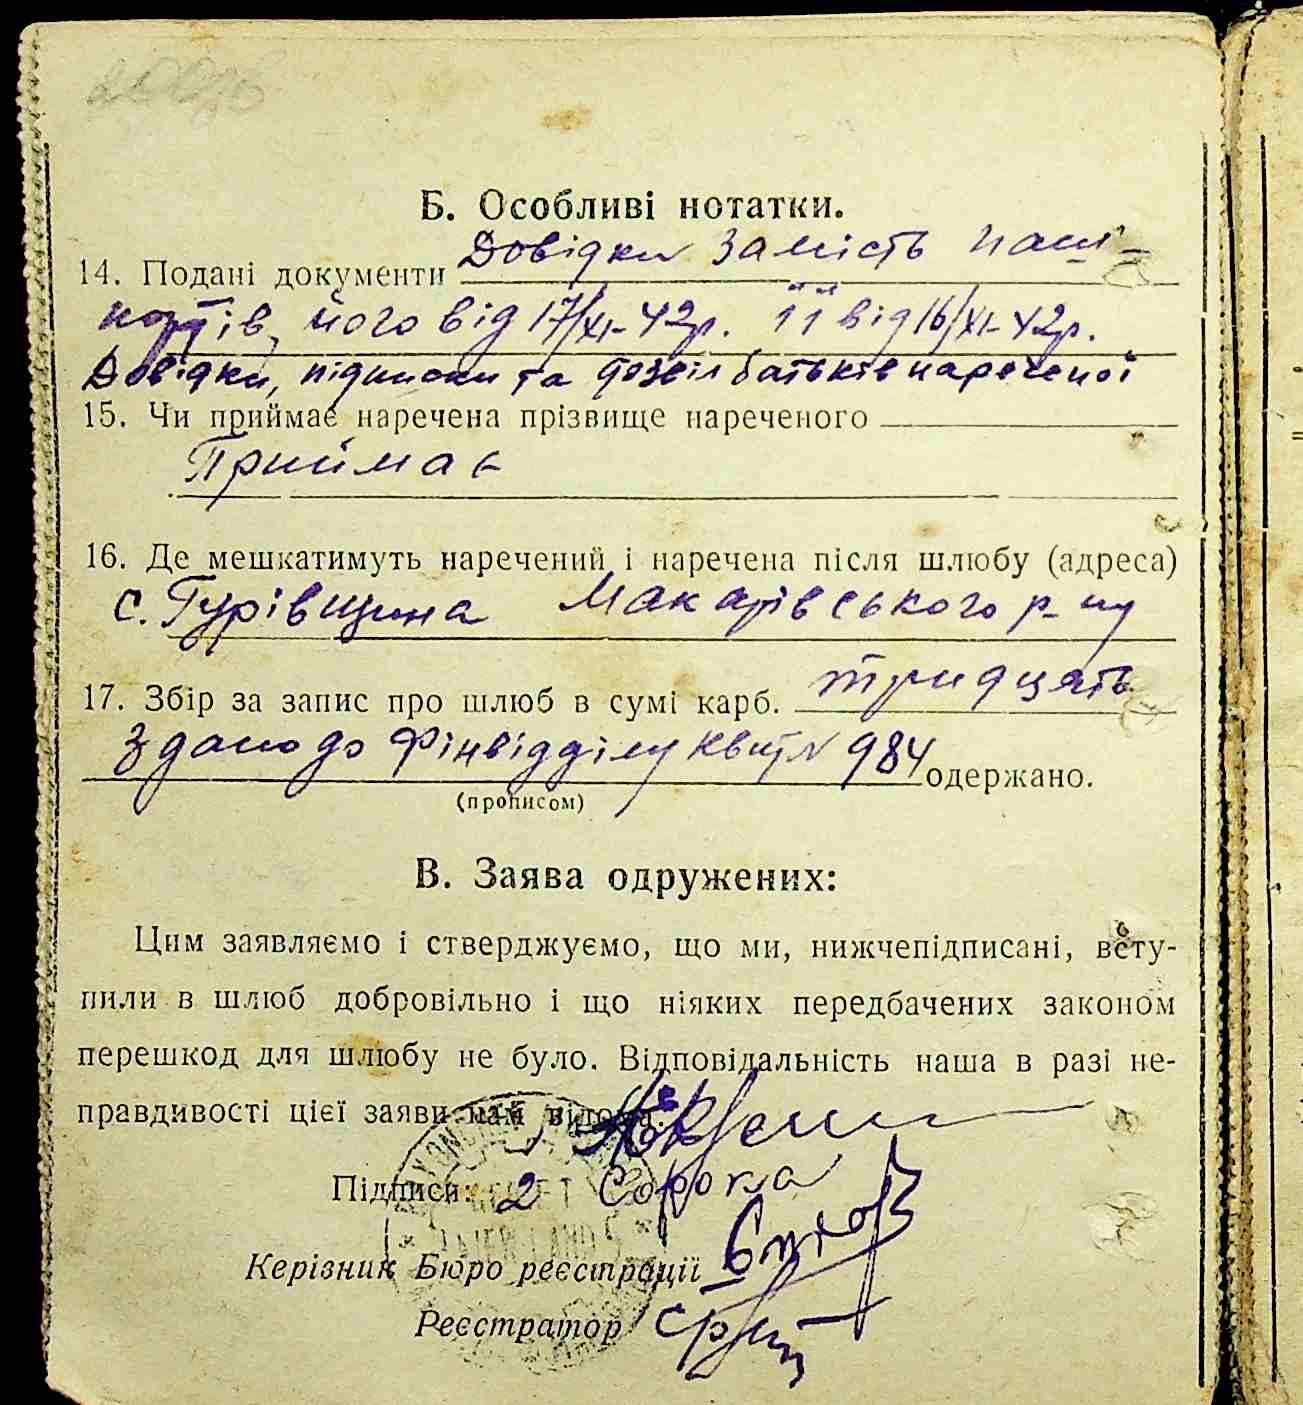 Б. Особливі нотатки.
14. Подані документи Довідки замість паш-
портів, його від 17/XI-42р. її від 16/XI-42р.
Довідки, підписки та дозвіл батьків нареченої
15. Чи приймає наречена прізвище нареченого
Приймає
16. Де мешкатимуть наречений і наречена після шлюбу (адреса)
с. Гурівщина Макарівського р-ну
17. Збір за запис про шлюб в сумі карб. тридцять
здано до Фінвідділу квит № 984 одержано.
(прописом)
В. Заява одружених:
Цим заявляємо і стверджуємо, що ми, нижчепідписані, всту-
пили в шлюб добровільно і що ніяких передбачених законом
перешкод для шлюбу не було. Відповідальність наша в разі не-
правдивості цієї заяви нам відома.
Підписи: 2 Сорока
Керівник Бюро реєстрації
Реєстратор